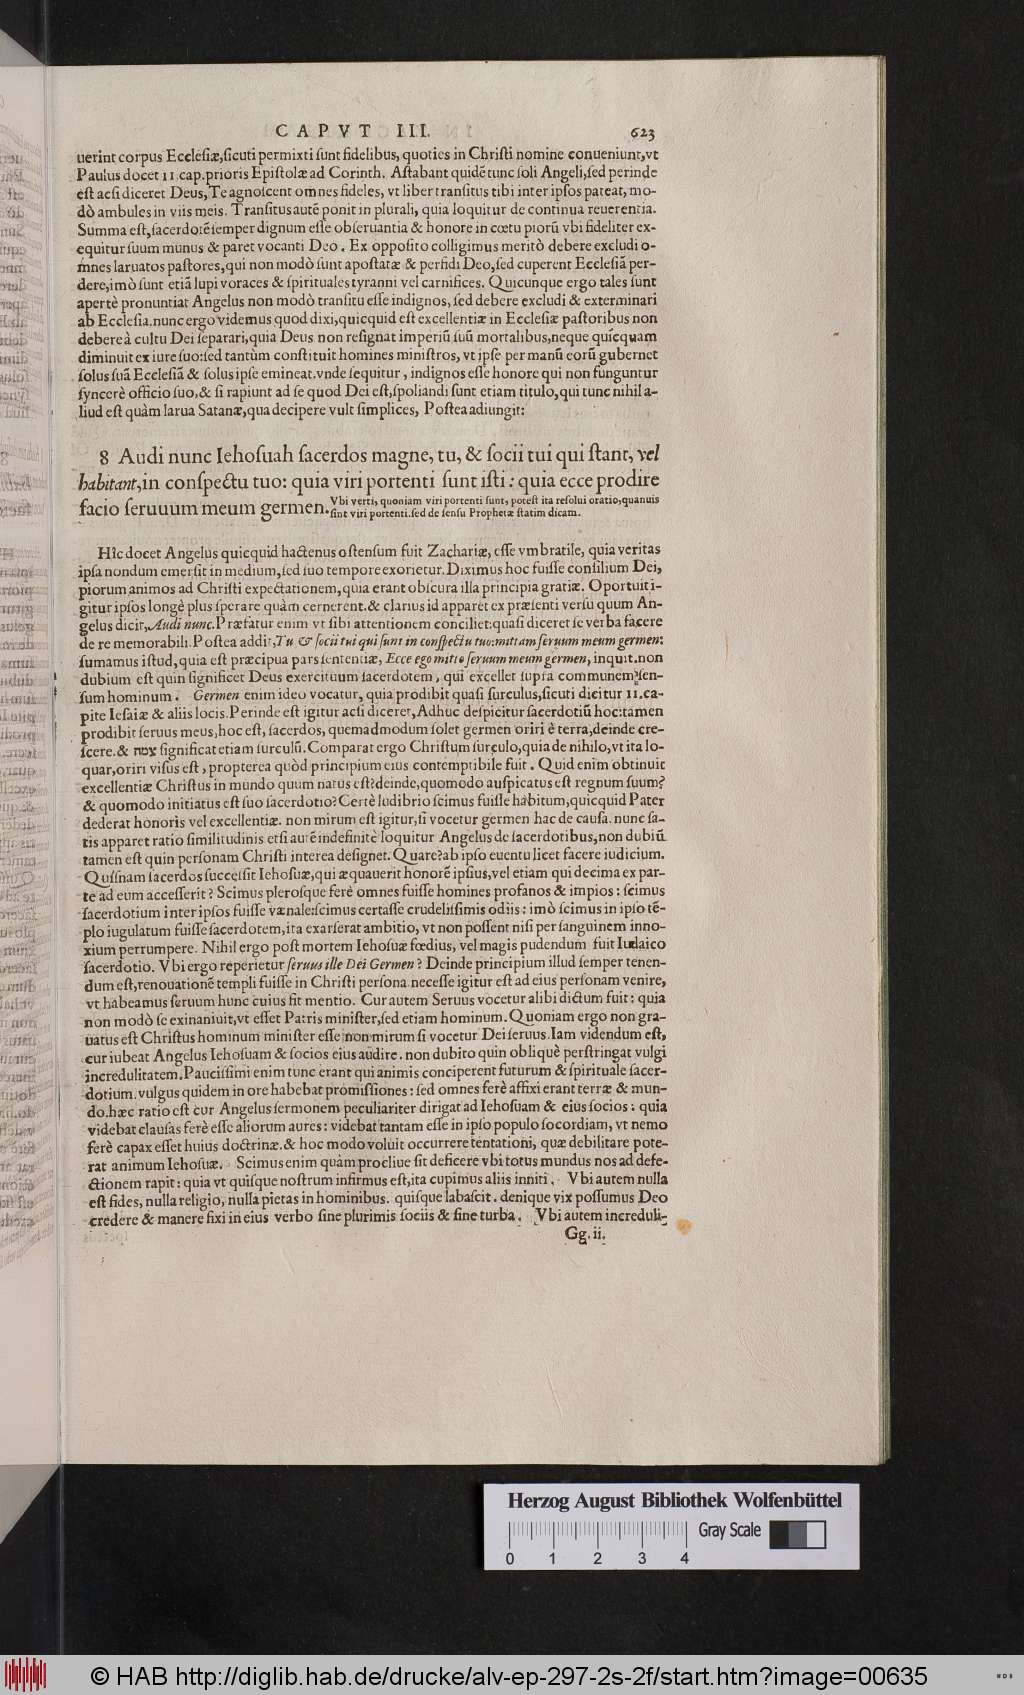 CAPVT III. 623
uerint corpus Ecclesiæ,sicuti permixti sunt fidelibus, quoties in Christi nomine conueniunt,vt
Paulus docet 11.cap.prioris Epistolæ ad Corinth. Astabant quidē tunc soli Angeli,sed perinde
est acsi diceret Deus,Te agnoscent omnes fideles, vt liber transitus tibi inter ipsos pateat, mo-
dò ambules in viis meis. Transitus autē ponit in plurali, quia loquitur de continua reuerentia.
Summa est,sacerdotē semper dignum esse obseruantia & honore in cœtu piorū vbi fideliter ex-
equitur suum munus & paret vocanti Deo. Ex opposito colligimus meritò debere excludi o-
mnes laruatos pastores,qui non modò sunt apostatæ & perfidi Deo,sed cuperent Ecclesiā per-
dere,imò sunt etiā lupi voraces & spirituales tyranni vel carnifices. Quicunque ergo tales sunt
apertè pronuntiat Angelus non modò transitu esse indignos, sed debere excludi & exterminari
ab Ecclesia.nunc ergo videmus quod dixi,quicquid est excellentiæ in Ecclesiæ pastoribus non
debere à cultu Dei separari,quia Deus non resignat imperiū suū mortalibus,neque quicquam
diminuit ex iure suo:sed tantùm constituit homines ministros, vt ipse per manū eorū gubernet
solus suā Ecclesiā & solus ipse emineat.vnde sequitur, indignos esse honore qui non funguntur
syncerè officio suo,& si rapiunt ad se quod Dei est,spoliandi sunt etiam titulo,qui tunc nihil a-
liud est quàm larua Satanæ,qua decipere vult simplices, Postea adiungit:
8 Audi nunc Iehosuah sacerdos magne, tu, & socii tui qui stant, vel
habitant,in conspectu tuo: quia viri portenti sunt isti: quia ecce prodire
facio seruuum meum germen. Vbi verti, quoniam viri portenti sunt, potest ita resolui oratio,quanuis
sint viri portenti.sed de sensu Prophetæ statim dicam.
Hîc docet Angelus quicquid hactenus ostensum fuit Zachariæ, esse vmbratile, quia veritas
ipsa nondum emersit in medium,sed suo tempore exorietur.Diximus hoc fuisse consilium Dei,
piorum animos ad Christi expectationem,quia erant obscura illa principia gratiæ. Oportuit i-
gitur ipsos longè plus sperare quàm cernerent.& clarius id apparet ex præsenti versu quum An-
gelus dicit,Audi nunc.Præfatur enim vt sibi attentionem conciliet:quasi diceret se verba facere
de re memorabili.Postea addit,Tu & socii tui qui sunt in conspectu tuo:mittam seruum meum germen:
sumamus istud,quia est præcipua pars sententiæ, Ecce ego mitto seruum meum germen, inquit.non
dubium est quin significet Deus exercituum sacerdotem, qui excellet supra communem sen-
sum hominum. Germen enim ideo vocatur, quia prodibit quasi surculus,sicuti dicitur 11.ca-
pite Iesaiæ & aliis locis.Perinde est igitur acsi diceret,Adhuc despicitur sacerdotiū hoc:tamen
prodibit seruus meus,hoc est, sacerdos, quemadmodum solet germen oriri è terra,deinde cre-
scere.& צמח significat etiam surculū.Comparat ergo Christum surculo,quia de nihilo,vt ita lo-
quar,oriri visus est, propterea quòd principium eius contemptibile fuit. Quid enim obtinuit
excellentiæ Christus in mundo quum natus est?deinde,quomodo auspicatus est regnum suum?
& quomodo initiatus est suo sacerdotio?Certè ludibrio scimus fuisse habitum,quicquid Pater
dederat honoris vel excellentiæ. non mirum est igitur,si vocetur germen hac de causa.nunc sa-
tis apparet ratio similitudinis etsi autē indefinitè loquitur Angelus de sacerdotibus,non dubiū
tamen est quin personam Christi interea designet.Quare?ab ipso euentu licet facere iudicium.
Quisnam sacerdos successit Iehosuæ,qui æquauerit honorē ipsius,vel etiam qui decima ex par-
te ad eum accesserit? Scimus plerosque ferè omnes fuisse homines profanos & impios: scimus
sacerdotium inter ipsos fuisse vænale:scimus certasse crudelissimis odiis: imò scimus in ipso tē-
plo iugulatum fuisse sacerdotem,ita exarserat ambitio, vt non possent nisi per sanguinem inno-
xium perrumpere. Nihil ergo post mortem Iehosuæ fœdius, vel magis pudendum fuit Iudaico
sacerdotio. Vbi ergo reperietur seruus ille Dei Germen? Deinde principium illud semper tenen-
dum est,renouationē templi fuisse in Christi persona.necesse igitur est ad eius personam venire,
vt habeamus seruum hunc cuius fit mentio. Cur autem Seruus vocetur alibi dictum fuit: quia
non modò se exinaniuit,vt esset Patris minister,sed etiam hominum.Quoniam ergo non gra-
uatus est Christus hominum minister esse non mirum si vocetur Dei seruus.Iam videndum est,
cur iubeat Angelus Iehosuam & socios eius audire. non dubito quin obliquè perstringat vulgi
incredulitatem.Paucissimi enim tunc erant qui animis conciperent futurum & spirituale sacer-
dotium.vulgus quidem in ore habebat promissiones: sed omnes ferè affixi erant terræ & mun-
do.hæc ratio est cur Angelus sermonem peculiariter dirigat ad Iehosuam & eius socios: quia
videbat clausas ferè esse aliorum aures: videbat tantam esse in ipso populo socordiam, vt nemo
ferè capax esset huius doctrinæ.& hoc modo voluit occurrere tentationi, quæ debilitare pote-
rat animum Iehosuæ. Scimus enim quàm procliue sit deficere vbi totus mundus nos ad defe-
ctionem rapit: quia vt quisque nostrum infirmus est,ita cupimus aliis inniti. Vbi autem nulla
est fides, nulla religio, nulla pietas in hominibus. quisque labascit. denique vix possumus Deo
credere & manere fixi in eius verbo sine plurimis sociis & sine turba. Vbi autem increduli-
Gg. ii.
Herzog August Bibliothek Wolfenbüttel
Gray Scale
0 1 2 3 4
© HAB http://diglib.hab.de/drucke/alv-ep-297-2s-2f/start.htm?image=00635
WDB